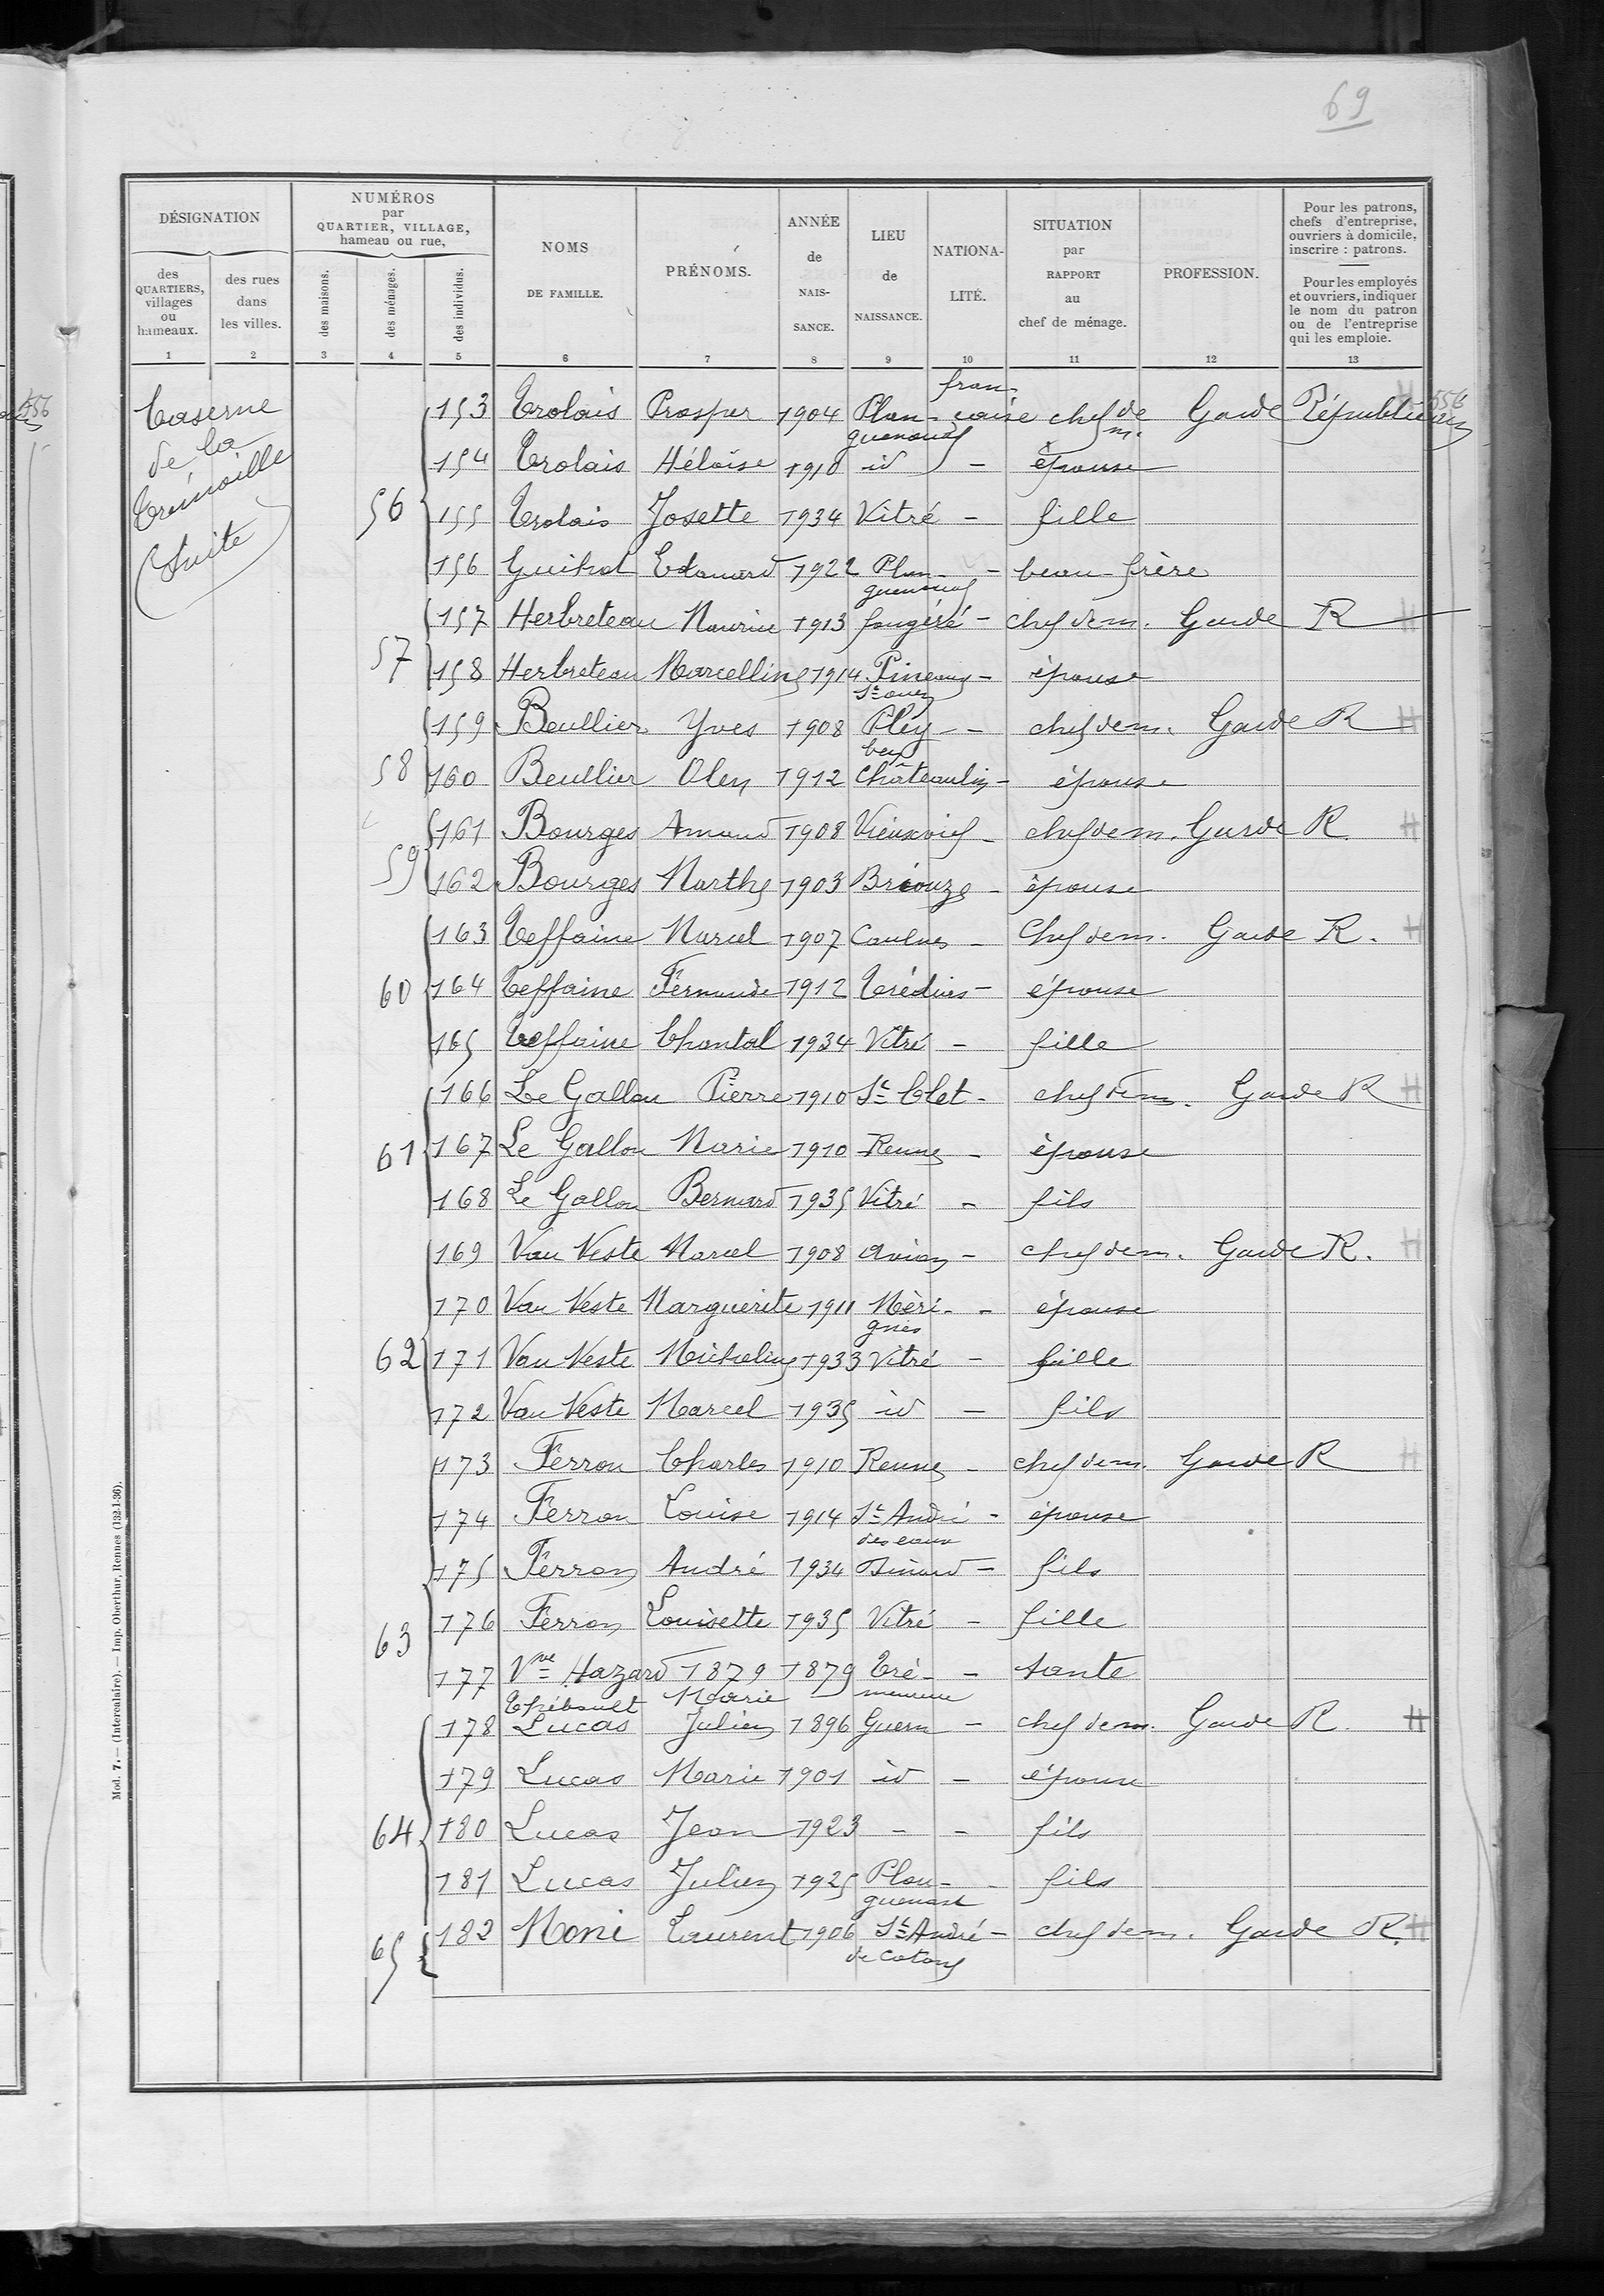 69
DÉSIGNATION
NUMÉROS
par
QUARTIER, VILLAGE,
hameau ou rue,
des
QUARTIERS,
villages
ou
hameaux.
des rues
dans
les villes.
des maisons.
des ménages.
des individus.
NOMS
DE FAMILLE.
PRÉNOMS.
ANNÉE
de
NAIS-
SANCE.
LIEU
de
NAISSANCE.
NATIONA-
LITÉ.
SITUATION
par
RAPPORT
au
chef de ménage.
PROFESSION.
Pour les patrons,
chefs d'entreprise,
ouvriers à domicile,
inscrire : patrons.
Pour les employés
et ouvriers, indiquer
le nom du patron
ou de l'entreprise
qui les emploie.
1 2 3 4 5 6 7 8 9 10 11 12 13
Caserne
de la
Trémoille
(Suite)
fran-
153 Trolais Prosper 1904 Plan- çaise chef de m. Garde Républicain 556
guenoual
154 Trolais Héloïse 1910 id - épouse
56
155 Trolais Josette 1934 Vitré - fille
156 Edouard 1922 Plan- - beau-frère
guenoual
157 Herbreteau Maurice 1913 fougéré - chef de m. Garde R
57
158 Herbreteau Marcelline 1914 Pineaux - épouse
St ouen
159 Beullier Yves 1908 Pley - - chef de m. Garde R
ben
58
160 Beullier 1912 Châteaulin - épouse
161 Bourges Amand 1908 Vieuxviel - chef de m. Garde R.
59
162 Bourges Marthe 1903 Briouze - épouse
163 Teffaine Marcel 1907 Caulnes - Chef de m. Garde R.
60
164 Teffaine Fernande 1912 Trédias - épouse
165 Teffaine Chantal 1934 Vitré - fille
166 Le Gallou Pierre 1910 St Clet - chef de m. Garde R
61
167 Le Gallou Marie 1910 Rennes - épouse
168 Le Gallou Bernard 1935 Vitré - fils
169 Van Neste Marcel 1908 Avion - chef de m. Garde R.
170 Van Neste Marguerite 1911 Méri- - épouse
gnies
62
171 Van Neste Micheline 1933 Vitré - fille
172 Van Neste Marcel 1935 id - fils
173 Ferron Charles 1910 Rennes - chef de m. Garde R
174 Ferron Louise 1914 St André - épouse
des eaux
175 Ferron André 1934 Dinard - fils
176 Ferron Louisette 1935 Vitré - fille
63
177 Vve Hazard 1879 1879 Tré- - tante
Thébault Marie
178 Lucas Julien 1896 Guern - chef de m. Garde R.
179 Lucas Marie 1901 id - épouse
64
180 Lucas Jean 1923 - - fils
181 Lucas Julien 1925 Plou- - fils
guenast
65
182 Moni Laurent 1906 St André - chef de m. Garde R.
de
Mod. 7. — (Intercalaire). — Imp. Oberthur, Rennes (132-1-36).